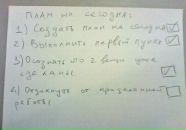 ПЛАН НА СЕГОДНЯ:
1) Создать план на сегодня
2) Выполнить первый пункт
3) Осознать что 2 вещи уже
сделаны
4) Отдохнуть от проделанной
работы